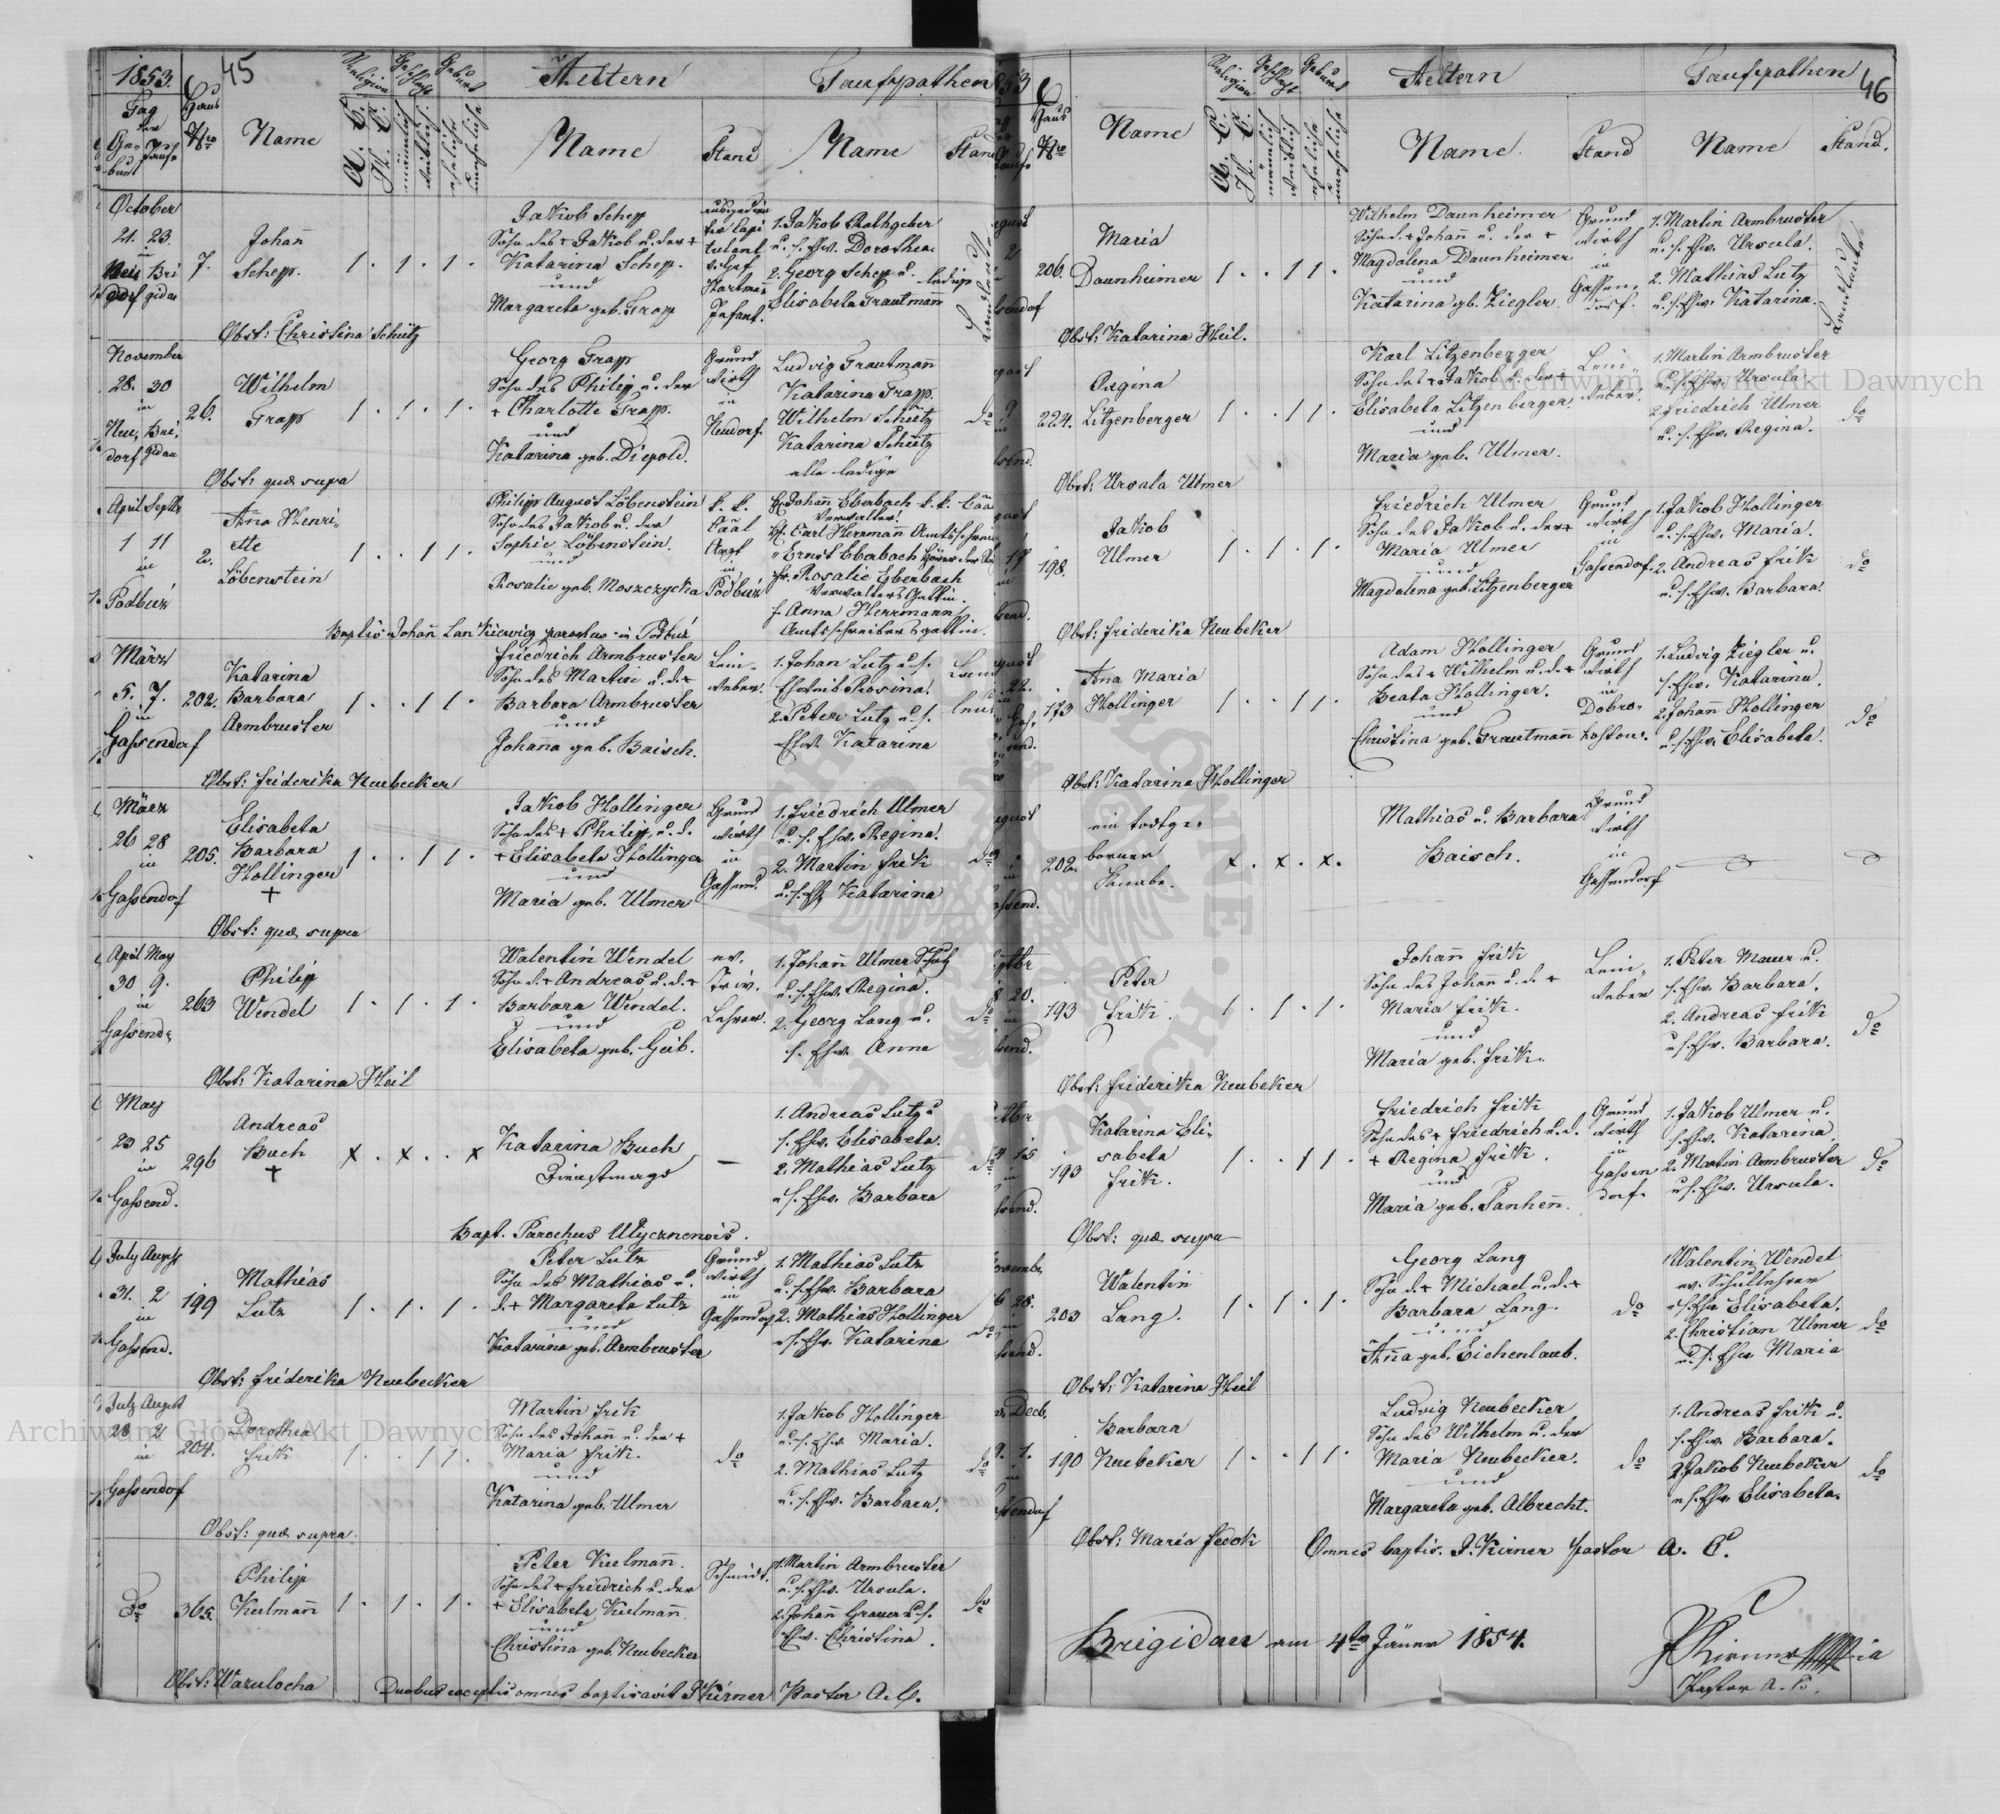 1853.
45
Haus
Religion
Geschlecht
Geburt
Aeltern
Taufpathen
Tag
der
Ge- Taufe
burt
Nro
Name
A. C.
H. C.
männlich
weiblich
eheliche
uneheliche
Name
Stand
Name
Stand
October
21. 23.
in
Neu Bri
dorf gidau
7.
Johañ
Schepp.
1 . 1 . 1 .
Jakob Schepp
Sohn des + Jakob u. der +
Katarina Schepp.
und
Margareta geb. Trapp
ausgedien
ter Capi
tulant
v. Graf
Hartmañ
Infant.
1. Jakob Rothgeber
u. s. Ehw. Dorothea
2. Georg Schepp u. ledige
Elisabeta Trautmañ
Landleute
Obst: Christina Schütz
November
28. 30
in
Neu, Bri,
dorf gidau
26.
Wilhelm
Trapp
1 . 1 . 1 .
Georg Trapp
Sohn des Philipp u. der
+ Charlotte Trapp.
und
Katarina geb. Diepold.
Grund
wirth
in
Neudorf
Ludvig Trautmañ
Katarina Trapp.
Wilhelm Schütz
Katarina Schütz
alle ledige
do
Obst: quæ supra
April Septbr
1 11
in
Podbuż
2.
Aña Henri-
ette
Löbenstein
1 . . 1 1 .
Philipp August Löbenstein
Sohn des Jakob u. der
Sophie Löbenstein.
und
Rosalie geb. Moszczycka
k. k.
Caal
Arzt
in
Podbuż
H. Johañ Eberbach k. k. Caal
Verwalter
H. Carl Herrmañ Amtsschrei
" Ernst Eberbach
Fr. Rosalie Eberbach
Verwalters Gattin.
f. Anna Herrmann
Amtsschreibers gattin.
Baptis. Johañ Lankiewicz parochus in Podbuż
März
5. 7.
in
Gassendorf
202.
Katarina
Barbara
Armbruster
1 . . 1 1 .
Friedrich Armbruster
Sohn des Martin u. d. +
Barbara Armbruster
und
Johaña geb. Baisch.
Lein-
weber.
1. Johan Lutz u. s.
Eheweib Rosina
2. Peter Lutz u. s.
Ehw. Katarina
Land
leute
Obst: Friderika Neubecker
März
26 28
in
Gassendorf
205.
Elisabeta
Barbara
Hollinger
+
1 . . 1 1 .
Jakob Hollinger
Sohn des + Philipp, u. d.
+ Elisabeta Hollinger
und
Maria geb. Ulmer
Grund
wirth
in
Gassend.
1. Friedrich Ulmer
u. s. Ehw. Regina
2. Martin Frik
u. s. Eh Katarina
do
Obst: quæ supra
April May
30 9.
in
Gassend.
263
Philipp
Wendel
1 . 1 . 1 .
Walentin Wendel
Sohn d. + Andreas u. d. +
Barbara Wendel.
und
Elisabeta geb. Geib.
ev.
Triv.
Lehrer.
1. Johañ Ulmer Schulz
u. s. Ehw. Regina.
2. Georg Lang u.
s. Ehw. Anna
do
Obst: Katarina Heil
May
23 25
in
Gassend.
296
Andreas
Buch
+
x . x . . x
Katarina Buch
Dienstmagd
—
1. Andreas Lutz u
s. Ehw. Elisabeta.
2. Mathias Lutz
u s. Ehw. Barbara
do
Bapt. Parochus Ulycznensis.
July August
31. 2
in
Gassend.
199
Mathias
Lutz
1 . 1 . 1 .
Peter Lutz
Sohn des Mathias u.
d. + Margareta Lutz
und
Katarina geb. Armbruster
Grund
wirth
in
Gassendorf
1. Mathias Lutz
u. s. Ehw. Barbara
2. Mathias Hollinger
u s. Ehw. Katarina
do
Obst: Friderika Neubecker
July August
28 2
in
Gassendorf
204.
Dorothea
Frik
1 . . 1 1 .
Martin Frik
Sohn des Johañ u. der +
Maria Frik.
und
Katarina geb. Ulmer
do
1. Jakob Hollinger
u. s. Ehw. Maria.
2. Mathias Lutz
u. s. Ehw. Barbara.
do
Obst: quæ supra.
do
365.
Philipp
Kulmañ
1 . 1 . 1 .
Peter Kulmañ.
Sohn des + Friedrich u. der
+ Elisabeta Kulmañ
und
Christina geb. Neubecker
Schmidt.
1. Martin Armbruster
u. s. Ehw. Ursula.
2. Johañ Grauer u. s.
Ehw. Christina.
do
Obst: Warulocha
Duobus exceptis omnes baptisavit P. Kirner Pastor A. C.
46
Haus
Nro
Name
Religion
Geschlecht
Geburt
A. C.
H. C.
männlich
weiblich
eheliche
uneheliche
Aeltern
Taufpathen
Name.
Stand
Name
Stand.
206.
Maria
Daunheimer
1 . . 1 1 .
Wilhelm Daunheimer
Sohn d. + Johañ u. der +
Magdalena Daunheimer
und
Katarina gb. Ziegler.
Grund
wirth
in
Gassen,
dorf.
1. Martin Armbruster
u. s. Ehw. Ursula.
2. Mathias Lutz
u. s. Ehw. Katarina.
Landleute
Obst: Katarina Heil.
224.
Regina
Litzenberger
1 . . 1 1 .
Karl Litzenberger
Sohn des + Jakob u. der +
Elisabeta Litzenberger
und
Maria geb. Ulmer.
Lein-
weber.
1. Martin Armbruster
u. s. Ehw. Ursula.
2. Friedrich Ulmer
u. s. Ehw. Regina.
do
Obst: Ursula Ulmer
198.
Jakob
Ulmer
1 . 1 . 1 .
Friedrich Ulmer
Sohn des Jakob u. der +
Maria Ulmer
und
Magdalena geb. Litzenberger
Grund
wirth
in
Gassendorf
1. Jakob Hollinger
u. s. Ehw. Maria.
2. Andreas Frik
u. s. Ehw. Barbara.
do
Obst: Friderika Neubeker
173
Aña Maria
Hollinger
1 . . 1 1 .
Adam Hollinger
Sohn des + Wilhelm u. d. +
Beata Hollinger.
und
Christina geb. Trautmañ
Grund
wirth
in
Dobro-
hostow.
1. Ludvig Ziegler u.
s. Ehw. Katarina.
2. Johañ Hollinger
u. s. Ehw. Elisabeta.
do
Obst: Katarina Hollinger
202.
ein todtge-
borner
Knabe.
x . x . x .
Mathias u. Barbara
Baisch.
Grund
wirth
in
Gassendorf
Obst:
193
Peter
Frik.
1 . 1 . 1 .
Johañ Frik
Sohn des Johañ u. d. +
Maria Frik.
und
Maria geb. Frik.
Lein-
weber
1. Peter Mauer u.
s. Ehw. Barbara.
2. Andreas Frik
u s. Ehw. Barbara.
do
Obst: Friderika Neubeker
193
Katarina Eli-
sabeta
Frik.
1 . . 1 1 .
Friedrich Frik
Sohn des + Friedrich u. d.
+ Regina Frik.
und
Maria geb. Panheñ.
Grund
wirth
in
Gassen
dorf.
1. Jakob Ulmer u.
s. Ehw. Katarina
2. Martin Armbruster
u s. Ehw. Ursula.
do
Obst: quæ supra
203
Walentin
Lang.
1 . 1 . 1 .
Georg Lang
Sohn d. + Michael u. d. +
Barbara Lang.
und
Aña geb. Eichenlaub.
do
1 Walentin Wendel
ev. Schullehrer
u s. Ehw Elisabeta.
2. Christian Ulmer
u. s. Ehw Maria
do
Obst: Katarina Heil
190
Barbara
Neubeker
1 . . 1 1 .
Ludvig Neubecker
Sohn des Wilhelm u. der
Maria Neubecker.
und
Margareta geb. Albrecht.
do
1. Andreas Frik u.
s. Ehw. Barbara.
2. Jakob Neubeker
u s. Ehw. Elisabeta.
do
Obst: Maria Fedok
Omnes baptis. P. Kirner pastor A. C.
Brigidau am 4ten Jäner 1854.
P Kirner
Pastor A. C.
Archiwum Główne Akt Dawnych
Archiwum Główne Akt Dawnych